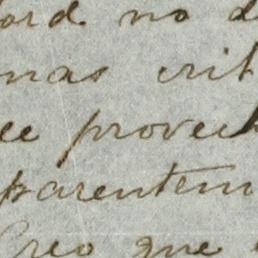 ord no d
mas crit
ee provech
parentem
Creo que